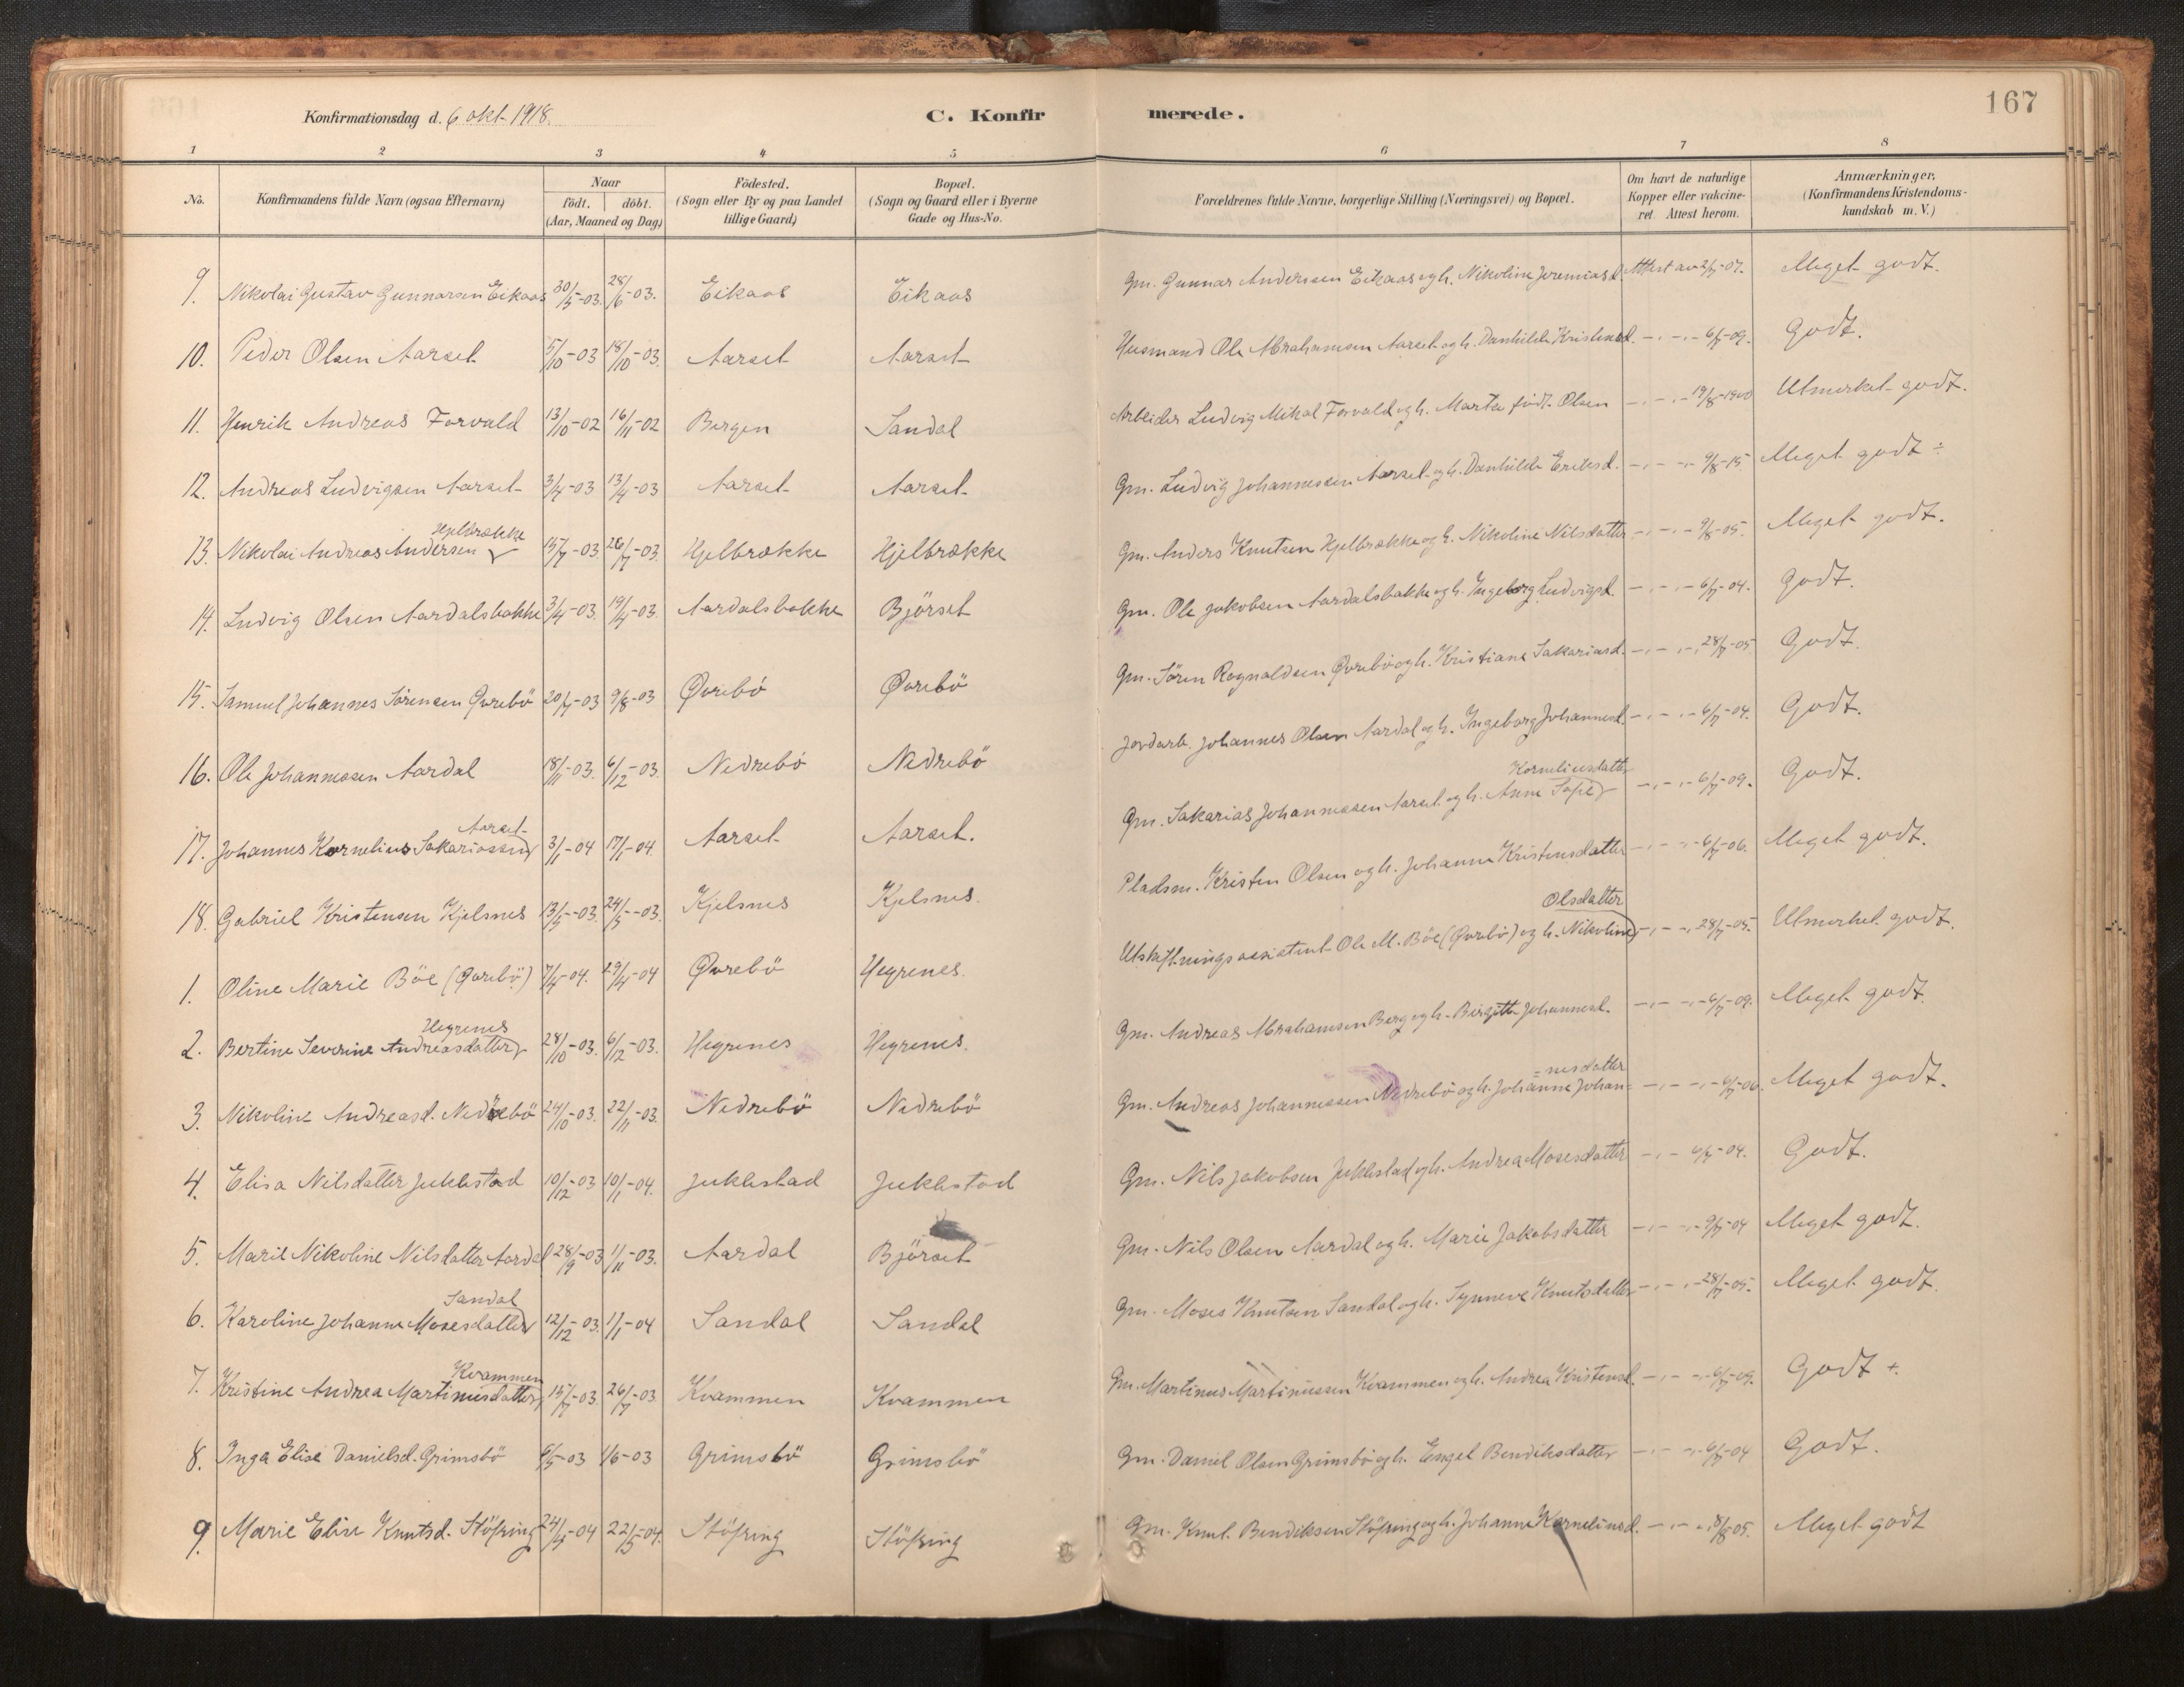 Konfirmationsdag d. 6 okt 1918.
C. Konfirmerede.
167
1 2 3 4 5 6 7 8
No. Konfirmandens fulde Navn (ogsaa Efternavn) Naar födt. döbt. (Aar, Maaned og Dag) Födested. (Sogn eller By og paa Landet tillige Gaard) Bopæl. (Sogn og Gaard eller i Byerne Gade og Hus-No. Forældrenes fulde Navne, borgerlige Stilling (Næringsvei) og Bopæl. Om havt de naturlige Kopper eller vakcineret. Attest herom. Anmærkninger, (Konfirmandens Kristendomskundskab m. V.)
9. Nikolai Gustav Gunnarsen Eikaas 30/5-03. 28/6-03. Eikaas Eikaas Gm. Gunnar Andersen Eikaas og h. Nikoline Jeremiasd. Attest av 2/7-07. Meget godt.
10. Peder Olsen Aarset 5/10-03 18/10-03. Aarset Aarset Husmand Ole Abrahamsen Aarset og h. Danhilde Kristensd. -,- -,- 6/7-09. Godt.
11. Henrik Andreas Forvald 13/10-02 16/11-02 Bergen Sandal Arbeider Ludvig Mikal Forvald og h. Marta födt Olsen -,- -,- 19/8-1900 Utmerket godt.
12. Andreas Ludvigsen Aarset 3/4-03 13/4-03 Aarset Aarset Gm. Ludvig Johannessen Aarset og h. Danhilde Eriksd. -,- -,- 9/8-15. Meget godt ÷
13. Nikolai Andreas Andersen Hjelbrække 15/7-03. 26/7-03. Hjelbrække Hjelbrække Gm. Anders Knutsen Hjelbrække og h. Nikoline Nilsdatter -,- -,- 9/8-05. Meget godt.
14. Ludvig Olsen Aardalsbakke 3/4-03. 19/4-03. Aardalsbakke Björset Gm. Ole Jakobsen Aardalsbakke og h. Ingeborg Ludvigsd. -,- -,- 6/7-04. Godt.
15. Samuel Johannes Sörensen Övrebö 20/7-03 9/8-03 Övrebö Övrebö Gm. Sören Rognaldsen Övrebö og h. Kristiane Sakariasd. -,- -,- 28/7-05 Godt.
16. Ole Johannessen Aardal 18/11-03. 6/12-03. Nedrebö Nedrebö Jordarb. Johannes Olsen Aardal og h. Ingeborg Johannesd. -,- -,- 6/7-04. Godt.
17. Johannes Kornelius Sakariassen Aarset 3/1-04 17/1-04. Aarset Aarset. Gm. Sakarias Johannessen Aarset og h. Anne Sofie Korneliusdatter -,- -,- 6/7-09. Godt.
18. Gabriel Kristensen Kjelsnes 13/5-03. 24/5-03. Kjelsnes Kjelsnes. Pladsm. Kristen Olsen og h. Johanne Kristensdatter -,- -,- 6/7-06. Meget godt.
1. Oline Marie Böe (Övrebö) 7/4-04. 29/4-04 Övrebö Hegrenes. Utskiftningsassistent Ole M. Böe (Övrebö) og h. Nikoline Olsdatter -,- -,- 28/7-05. Utmerket godt.
2. Bertine Severine Andreasdatter Hegrenes 28/10-03. 6/12-03. Hegrenes Hegrenes. Gm. Andreas Abrahamsen Berg og h. Birgitte Johannesd. -,- -,- 6/7-09. Meget godt.
3. Nikoline Andreasd. Nedrebö 24/10-03. 22/11-03. Nedrebö Nedrebö Gm. Andreas Johannessen Nedrebö og h. Johanne Johan= =nesdatter -,- -,- 6/7-06. Meget godt.
4. Elisa Nilsdatter Juklestad 10/12-03 10/1-04. Juklestad Juklestad Gm. Nils Jakobsen Juklestad og h. Andrea Mosesdatter -,- -,- 6/7-04. Godt.
5. Marie Nikoline Nilsdatter Aardal 28/9-03 1/11-03. Aardal Björset Gm. Nils Olsen Aardal og h. Marie Jakobsdatter -,- -,- 9/7-04 Meget godt.
6. Karoline Johanne Mosesdatter Sandal 12/12-03. 1/1-04 Sandal Sandal Gm. Moses Knutsen Sandal og h. Synneve Knutsdatter -,- -,- 28/7-05. Meget godt.
7. Kristine Andrea Martinusdatter Kvammen 15/7-03. 26/7-03. Kvammen Kvammen Gm. Martinus Martinussen Kvammen og h. Andrea Kristensd. -,- -,- 6/7-09. Godt +.
8. Inga Elise Danielsd. Grimsbö 6/5-03 1/6-03 Grimsbö Grimsbö Gm. Daniel Olsen Grimsbö og h. Engel Bendiksdatter -,- -,- 6/7-04 Godt.
9. Marie Elise Knutsd. Stöfring 24/4-04 22/5-04. Stöfring Stöfring Gm. Knut Bendiksen Stöfring og h. Johanne Korneliusd. -,- -,- 8/8-05. Meget godt